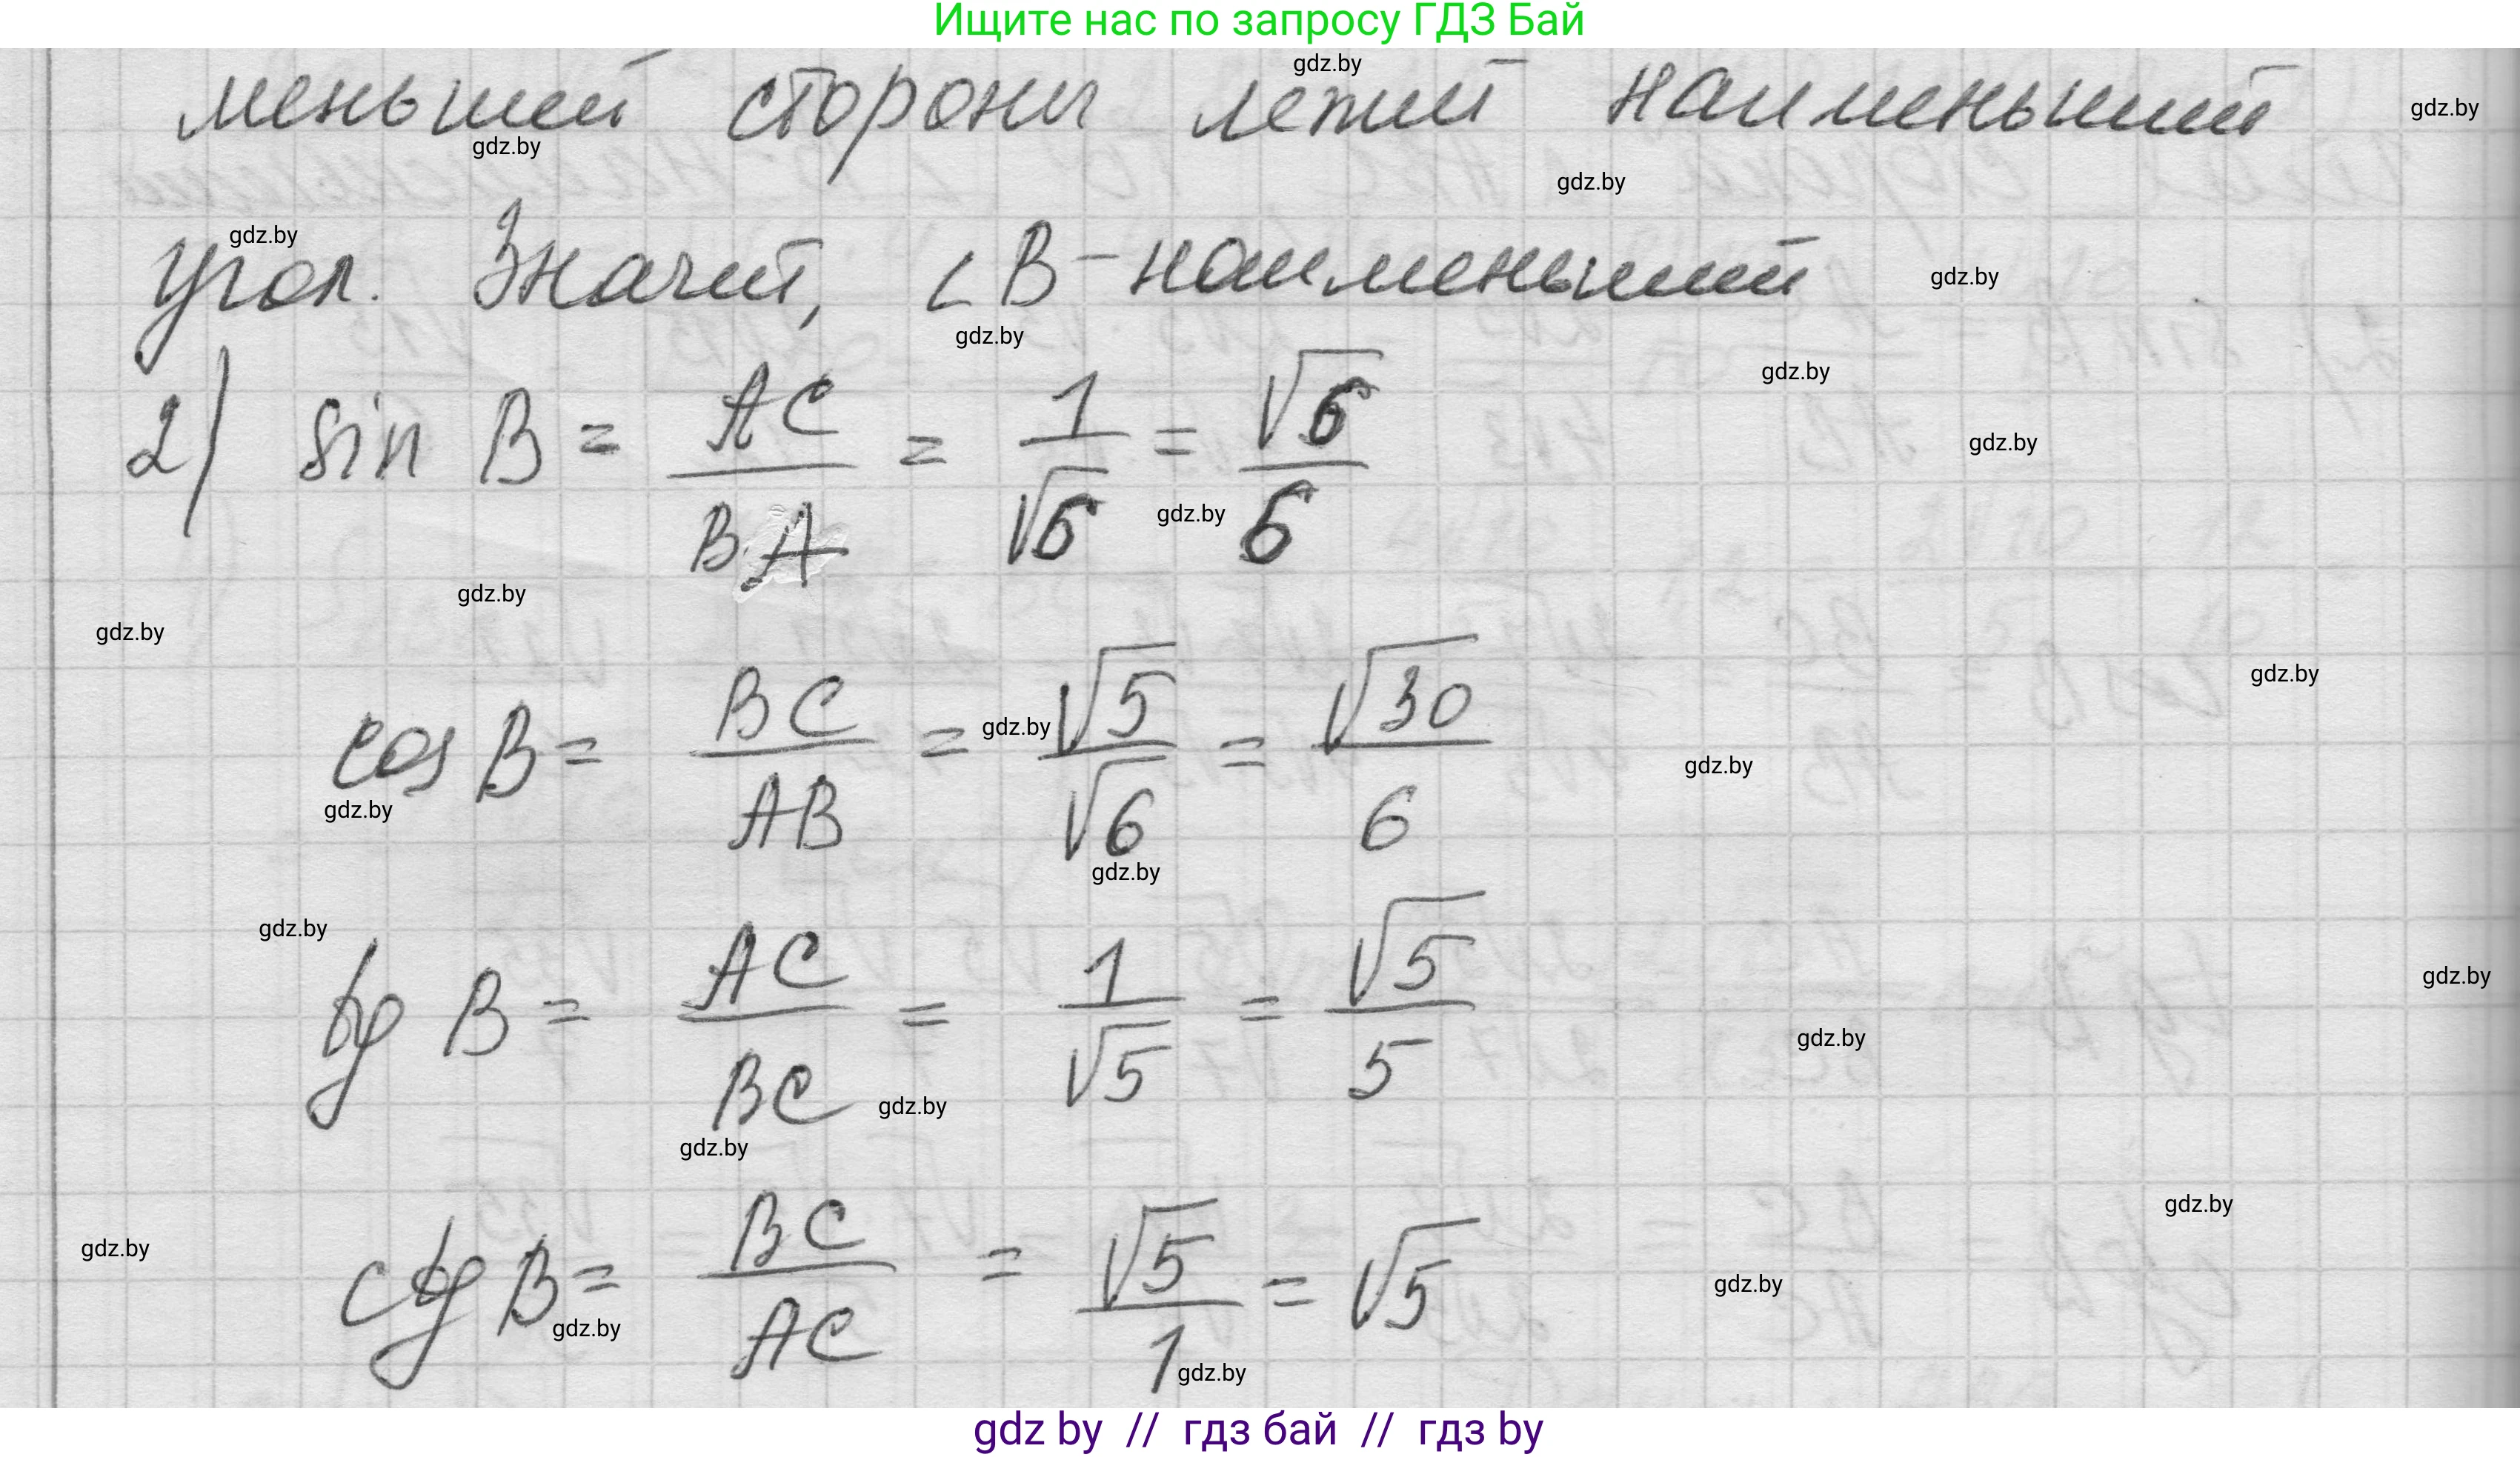 Ищите нас по запросу ГДЗ Бай
gdz.by
меньшей стороны лежит наименьший
gdz.by
gdz.by
gdz.by
gdz.by
угол. Значит, ∠B - наименьший
gdz.by
gdz.by
gdz.by
2) sin B = AC/BA = 1/√6 = √6/6
gdz.by
gdz.by
gdz.by
gdz.by
gdz.by
cos B = BC/AB = √5/√6 = √30/6
gdz.by
gdz.by
gdz.by
gdz.by
gdz.by
tg B = AC/BC = 1/√5 = √5/5
gdz.by
gdz.by
gdz.by
gdz.by
gdz.by
ctg B = BC/AC = √5/1 = √5
gdz.by
gdz.by
gdz.by
gdz.by
gdz.by
gdz by // гдз бай // гдз by